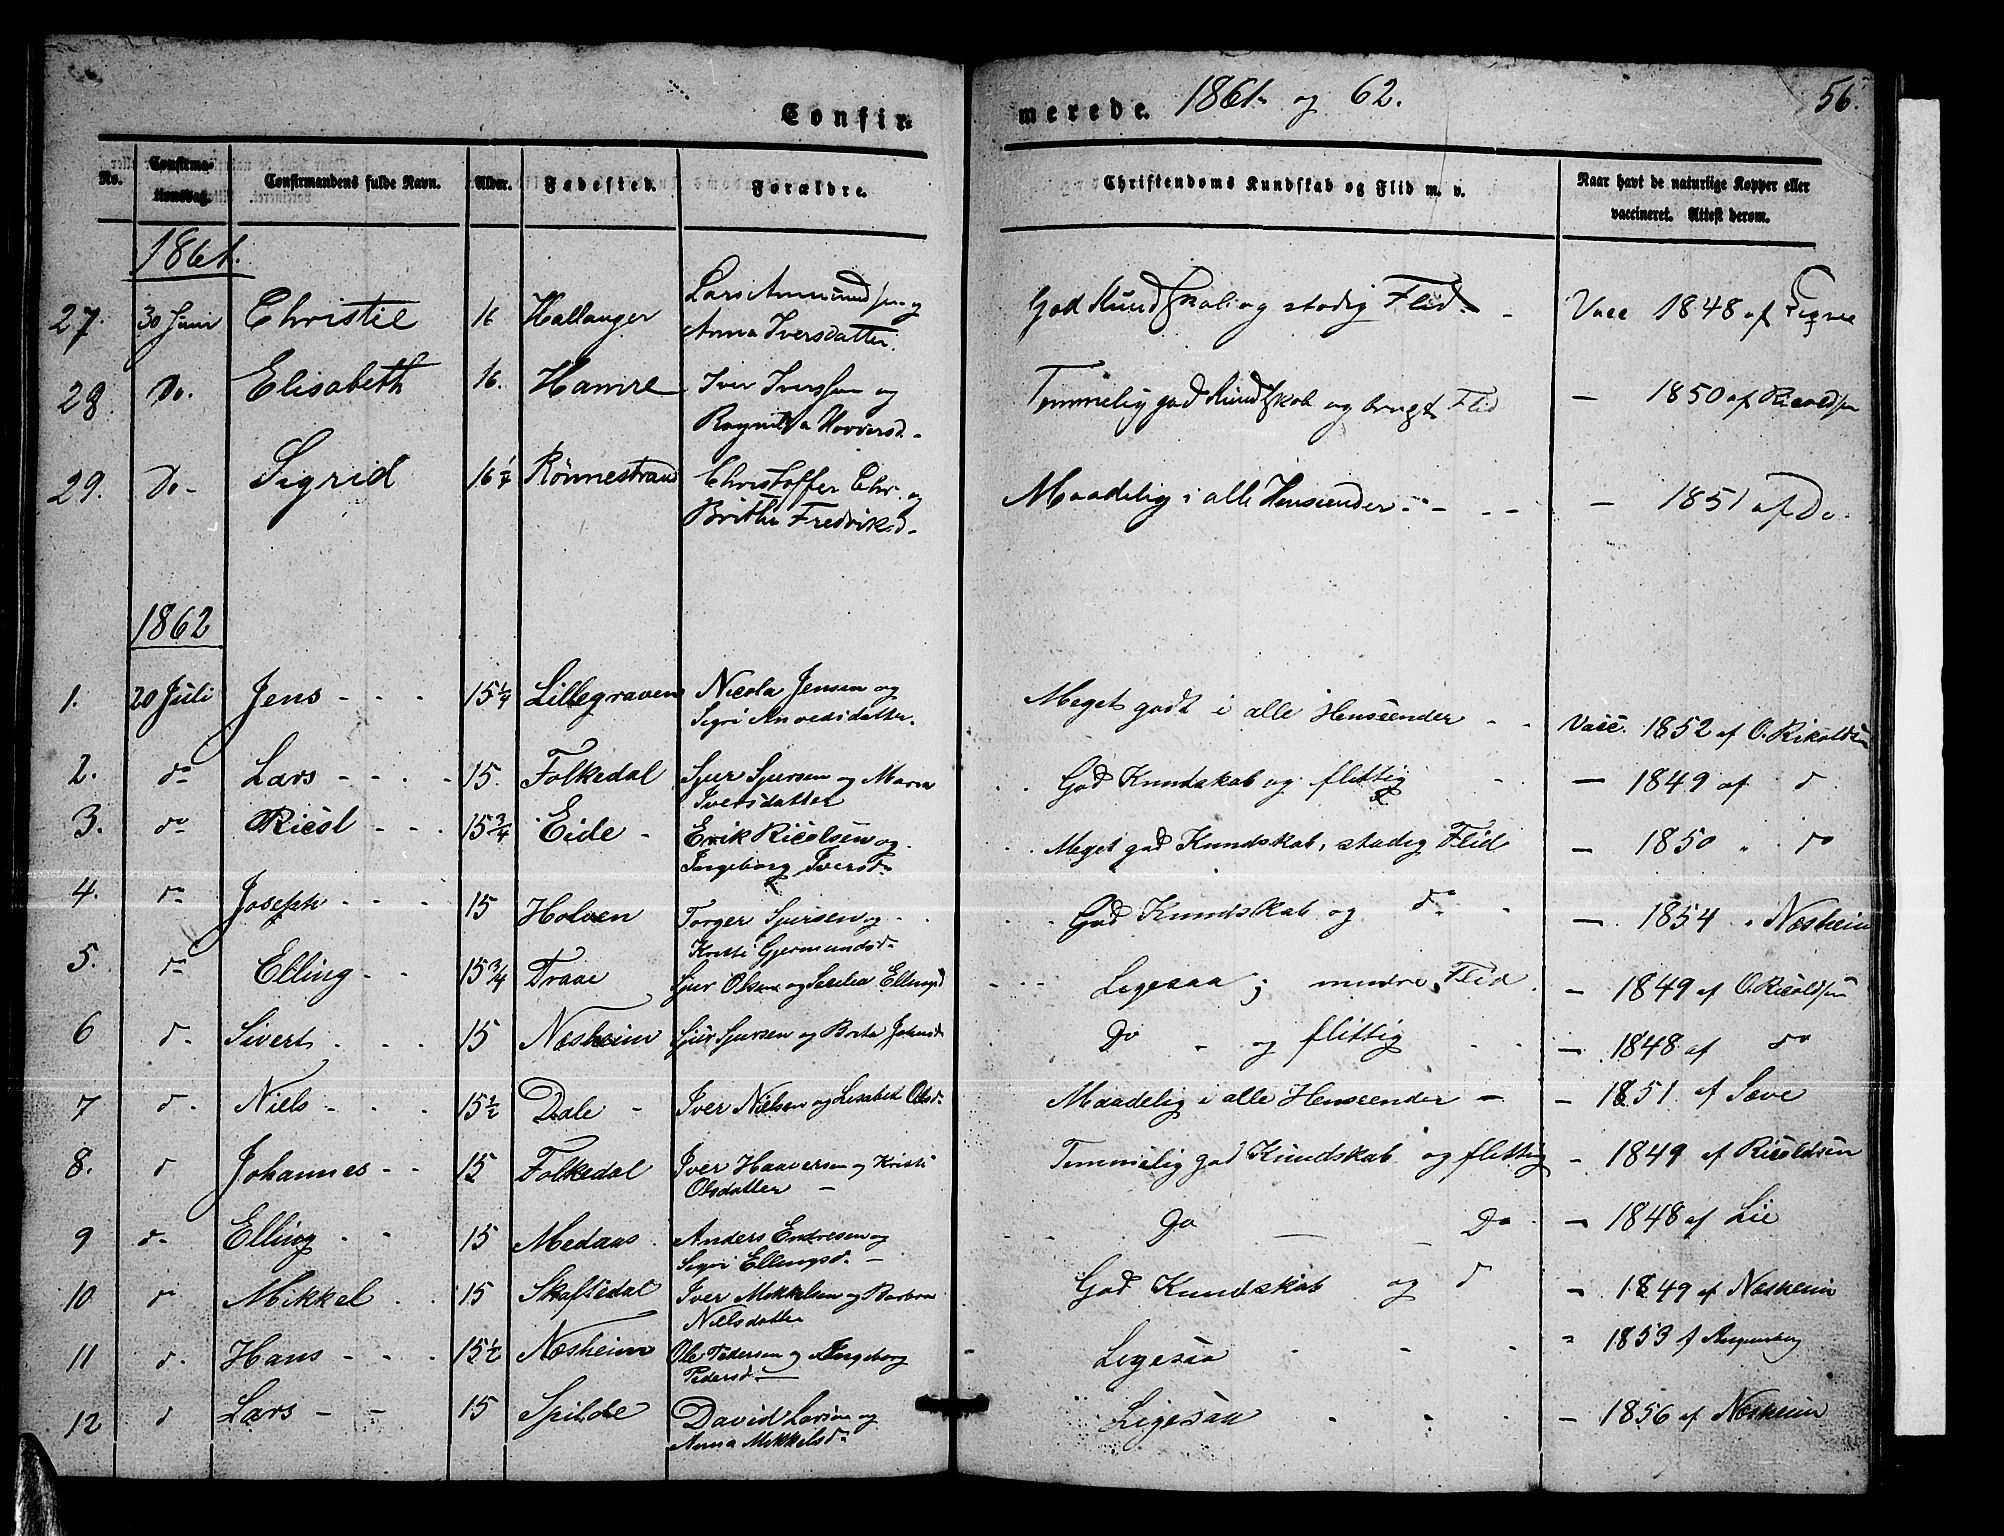 Confir-
merede. 1861 og 62.
56.
No.
Confirma-
tionsdag.
Confirmandens fulde Navn.
Alder.
Fødested.
Forældre.
Christendoms Kundskab og Flid m. v.
Naar havt de naturlige Kopper eller
vaccineret. Attest derom.
1861.
27. 30 Juni Christie 16 Hallanger Lars Amundsen og
Anna Iversdatter. God Kundskab og stadig Flid. Vacc 1848 af
28. Do. Elisabeth 16. Hamre Iver Iverssen og
Ragnilda Hovversd. Temmelig god Kundskab og brugt Flid — 1850 af Ricoldsen
29. Do- Sigrid 16 Rönnestrand Christoffer Chr. og
Britha Fredriksd. Maadelig i alle Henseender - - - — 1851 af Do.
1862
1. 20 Juli Jens - - - 15 1/4 Lillegraven Nicola Jensen og
Sigri Anvedsdatter. Meget godt i alle Henseender - - Vacc. 1852 af O. Rikoldsen
2. do Lars - - - 15. Folkedal Sjur Sjursen og Maria
Iversdatter God Kundskab og flittig — 1849 af d
3. do Ricol - - - 15 3/4 Eide - Erik Ricolsen og
Ingeborg Iversd. Meget god Kundskab, stadig Flid — 1850 " do
4. do Joseph - - - 15 Holven Torger Sjursen og
Kristi Gjermundsd. God Kundskab og do — 1854 " Næsheim
5. do Elling - - 15 3/4 Traae Sjur Olsen og Secilia Ellingsd Ligesaa; mindre Flid — 1849 af O. Ricoldsen
6 d. Sivert - - - 15 Næsheim Sjur Sjursen og Brita Johnsd Do - og flittig — 1848 af do
7 d. Niels - - - 15 1/2 Dale - Iver Nielsen og Lisabet Olsd. Maadelig i alle Henseender - — 1851 af Sæve
8. d Johannes - - 15 Folkedal Iver Haaversen og Kristi
Olsdatter — Temmelig god Kundskab og flittig — 1849 af Ricoldsen
9 d. Elling - - 15 Medaas Anders Endresen og
Sigri Ellingsd. — Do — Do — 1848 af Lie
10 d. Mikkel - - 15 Skaftedal Iver Mikkelsen og Barbra
Nielsdatter God Kundskab og d — 1849 af Næsheim
11 d. Hans - - - 15 1/2 Næsheim Ole Pedersen og Ingeborg
Pedersd. — Ligesaa - - - " 1853 f
12 d Lars - - 15 Spilde David Larsen og
Anna Mikkelsd. Ligesaa - - - — 1856 af Næsheim